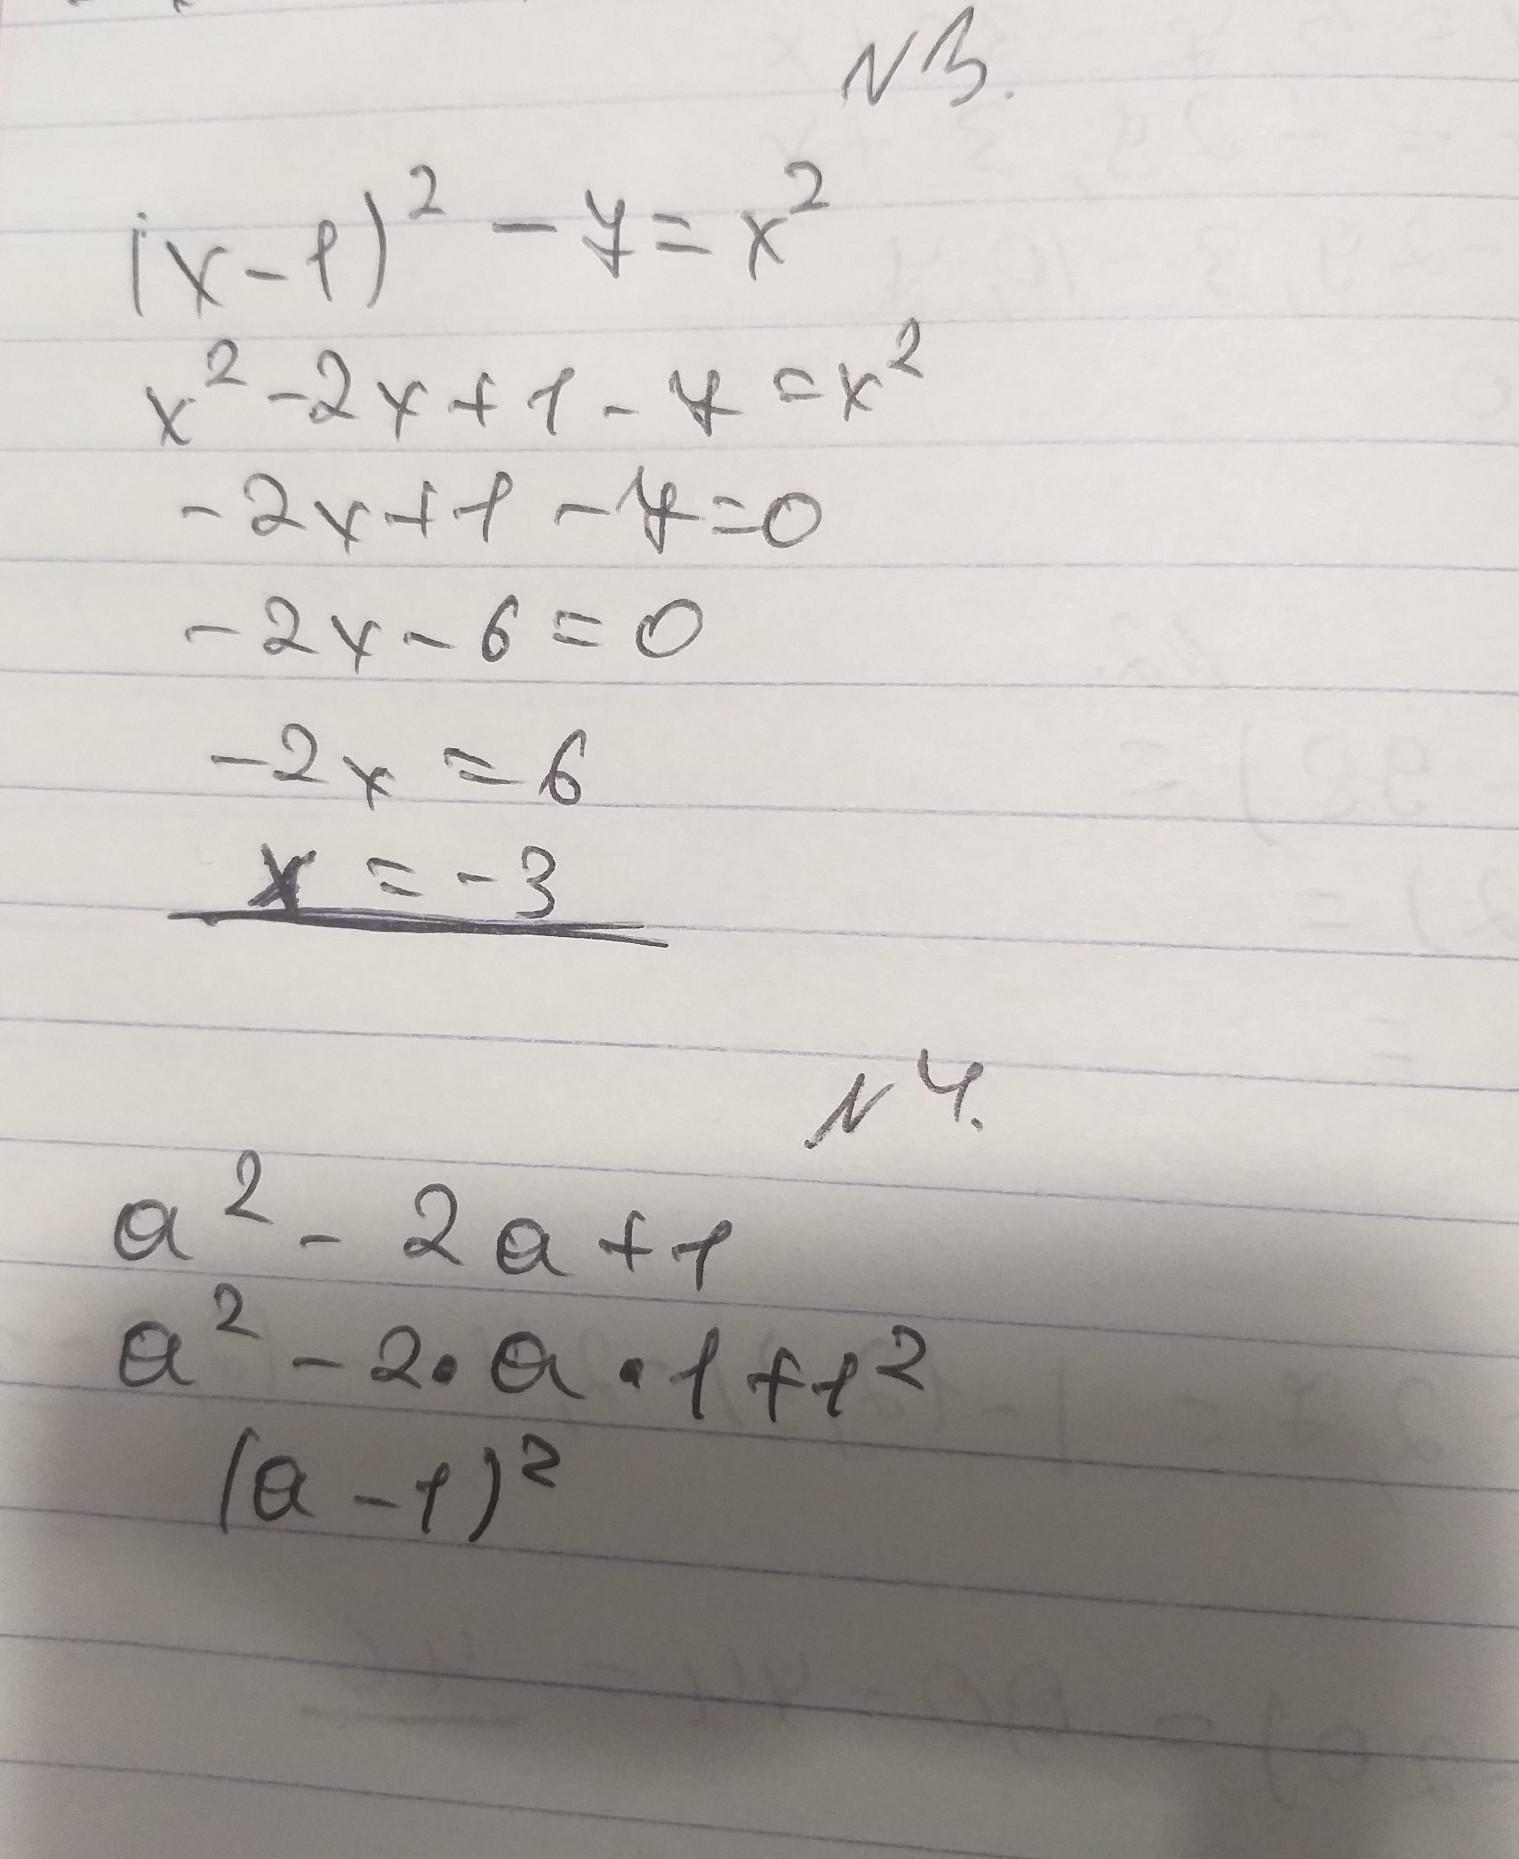 N3.
(x-1)² - 7 = x²
x² - 2x + 1 - 7 = x²
- 2x + 1 - 7 = 0
- 2x - 6 = 0
- 2x = 6
x = -3
N4.
a² - 2a + 1
a² - 2 • a • 1 + 1²
(a - 1)²